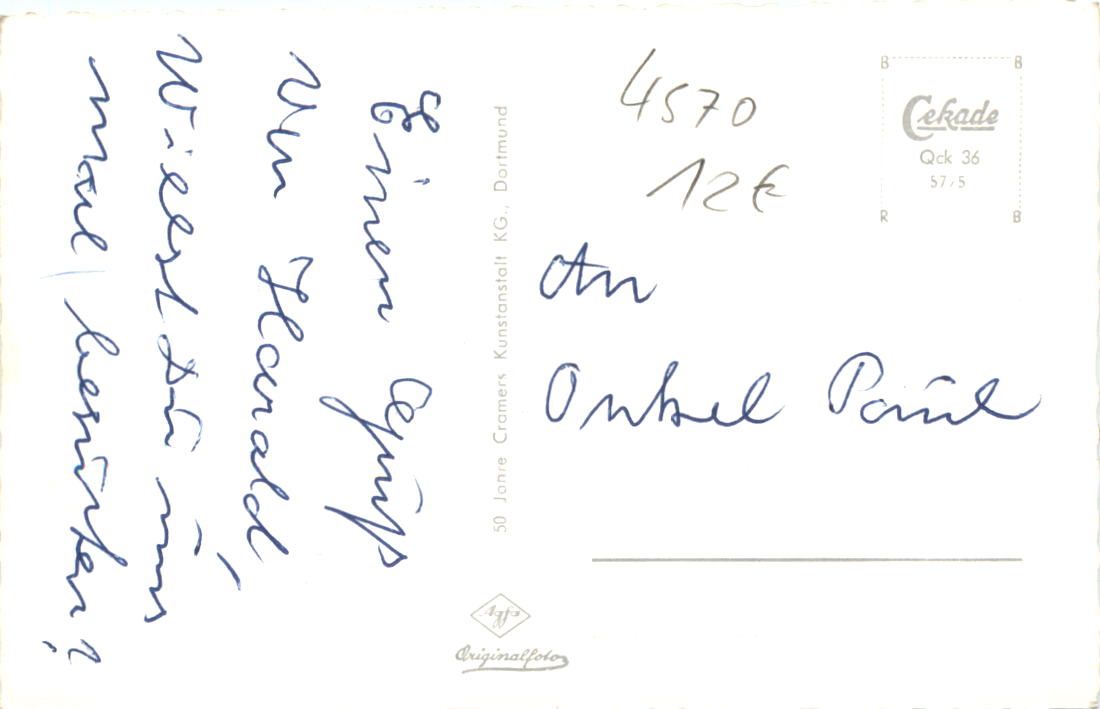 Einen Gruß
von Harald,
Willst Du uns
mal besuchen?
50 Jahre Cramers Kunstanstalt KG., Dortmund
Agfa
Originalfoto
4570
12€
B B
Cekade
Qck 36
57/5
R B
An
Onkel Paul